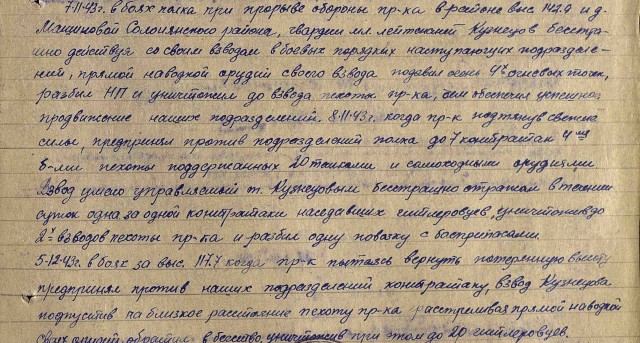 7-11-43г. в боях полка при прорыве обороны пр-ка в районе выс. 142.9 и д.
Машиновой Солонянского района, гвардии мл. лейтенант Кузнецов бесстра-
шно действуя со своим взводом в боевых порядках наступающих подразделе-
ний, прямой наводкой орудий своего взвода подавил огонь 4х огневых точек,
разбил НП и уничтожил до взвода пехоты пр-ка, чем обеспечил успешное
продвижение наших подразделений. 8-11-43г. когда пр-к подтянув свежие
силы, предпринял против подразделений полка до 7 контратак
б-ми пехоты поддержанных 20 танками и самоходными орудиями
Взвод умело управляемый т. Кузнецовым бесстрашно отражал в течении
суток одна за одной контратаки наседавших гитлеровцев, уничтожив до
2х взводов пехоты пр-ка и разбил одну повозку с боеприпасами.
5-12-43г. в боях за выс. 117.7 когда пр-к пытаясь вернуть потерянную высоту
предпринял против наших подразделений контратаку, взвод Кузнецова
подпустив на близкое расстояние пехоту пр-ка расстреливая прямой наводкой
своих орудий, обратил в бегство, уничтожив при этом до 20 гитлеровцев.